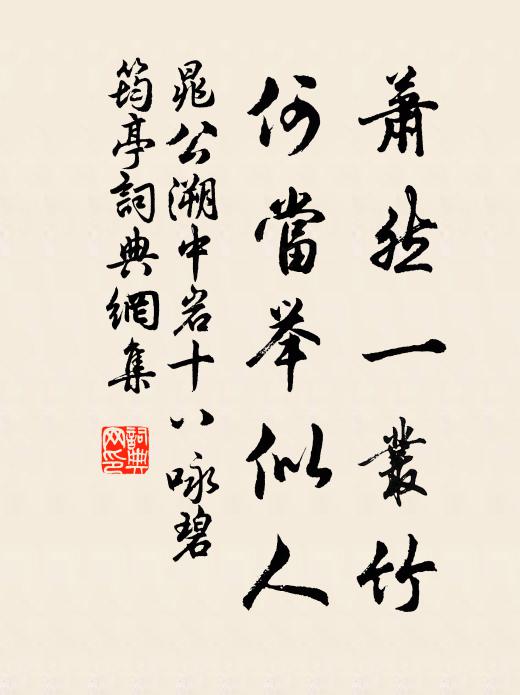 蕭然一叢竹
何當举似人
晁公溯中岩十八咏碧
筠亭詞典網集
詞典网印